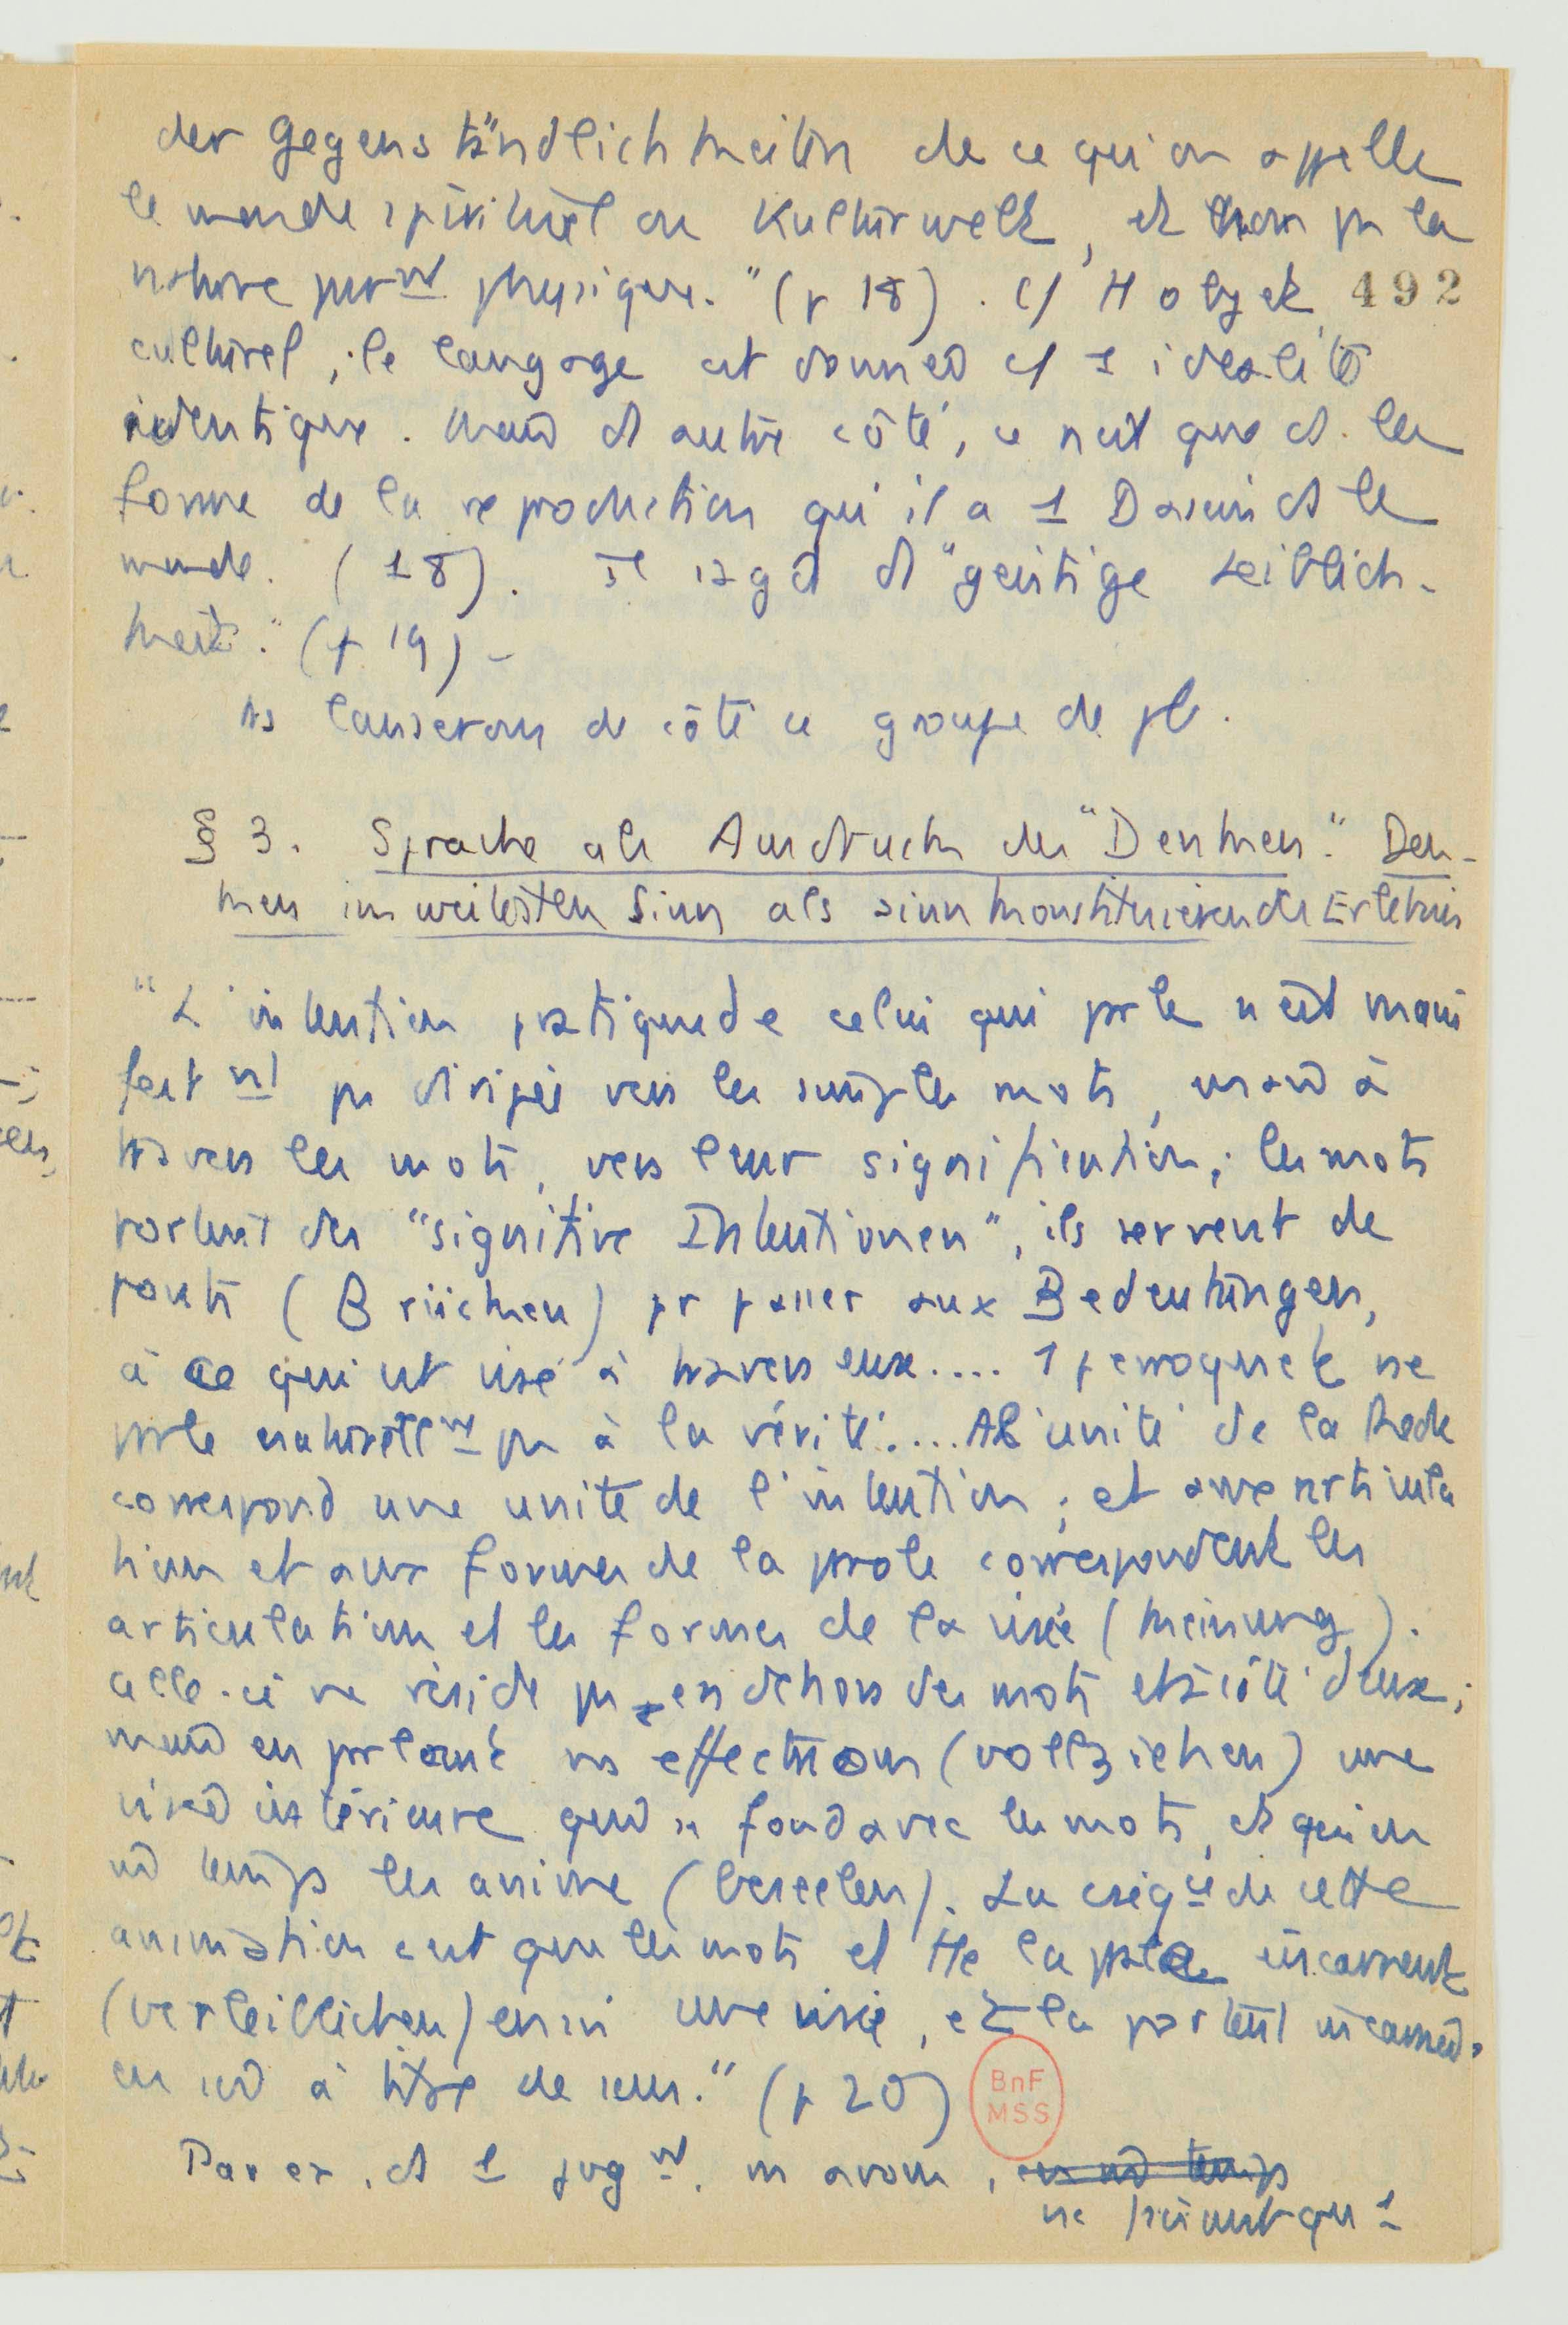 der Gegenständlichkeiten de ce qu'on appelle
le monde spirituel ou Kulturwelt, et non pas la
nature purnt physique." (p 18). c/ tt objet 492
culturel, le langage est donné c/ 1 idéalité
identique. Mais d autre côté, ce n'est que ds la
forme de la reproduction qu'il a 1 Dasein ds le
monde. (18). Il s'agit d "geistige Leiblich-
keit." (p 19) -
ns laisserons de côté ce groupe de pb.
§ 3. Sprache als Ausdruck des "Denken". Den-
ken im weitesten Sinn als sinnkonstituierende Erlebnis
"L'intention pratique de celui qui parle n'est mani
festnt pas dirigée vers les simples mots, mais à
travers les mots, vers leur signification; les mots
portent des "signitive Intentionen", ils servent de
ponts (Brücken) pr passer aux Bedeutungen,
à ce qui est visé à travers eux.... 1 perroquet ne
parle naturellnt pas à la vérité.... A l'unité de la Rede
correspond une unité de l'intention; et aux articula
tions et aux formes de la parole correspondent les
articulations et les formes de la visée (Meinung).
celle-ci ne réside pas en dehors des mots et à côté d'eux;
mais en parlant ns effectuons (vollziehen) une
visée intérieure qui se fond avec les mots, et qui en
m̂ temps les anime (beseelen). La cséqce de cette
animation c'est que les mots et tte la parole incarnent
(verleiblichen) en soi une visée, et la portent incarnée
en soi à titre de sens." (p 20)
BnF
MSS
Par ex. ds 1 jugnt. ns avons, en m̂ temps